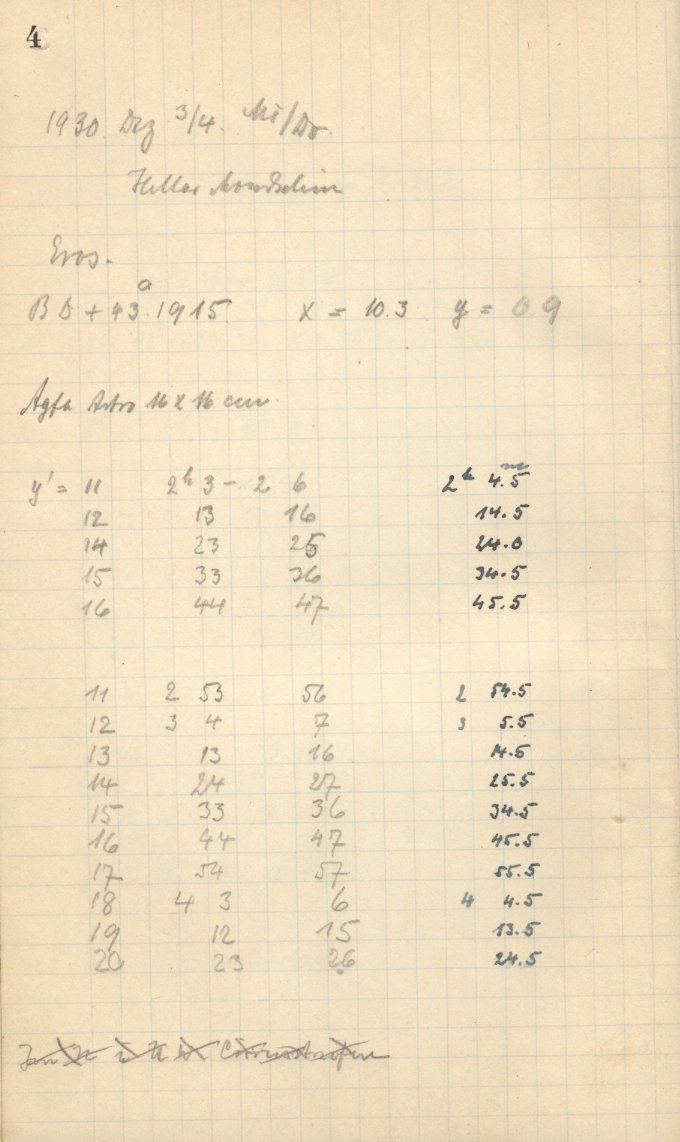 4
1930 Dez 3/4. Mi/Do.
Heller Mondschein
Eros.
a
BD + 43.1915 x = 10.3 y = 0.9
Agfa Astro 16 x 16 cm
m
y' = 11 2h 3 - 2 6 2h 4.5
12 13 16 14.5
14 23 25 24.0
15 33 36 34.5
16 44 47 45.5
11 2 53 56 2 54.5
12 3 4 7 3 5.5
13 13 16 14.5
14 24 27 25.5
15 33 36 34.5
16 44 47 45.5
17 54 57 55.5
18 4 3 6 4 4.5
19 12 15 13.5
20 23 26 24.5